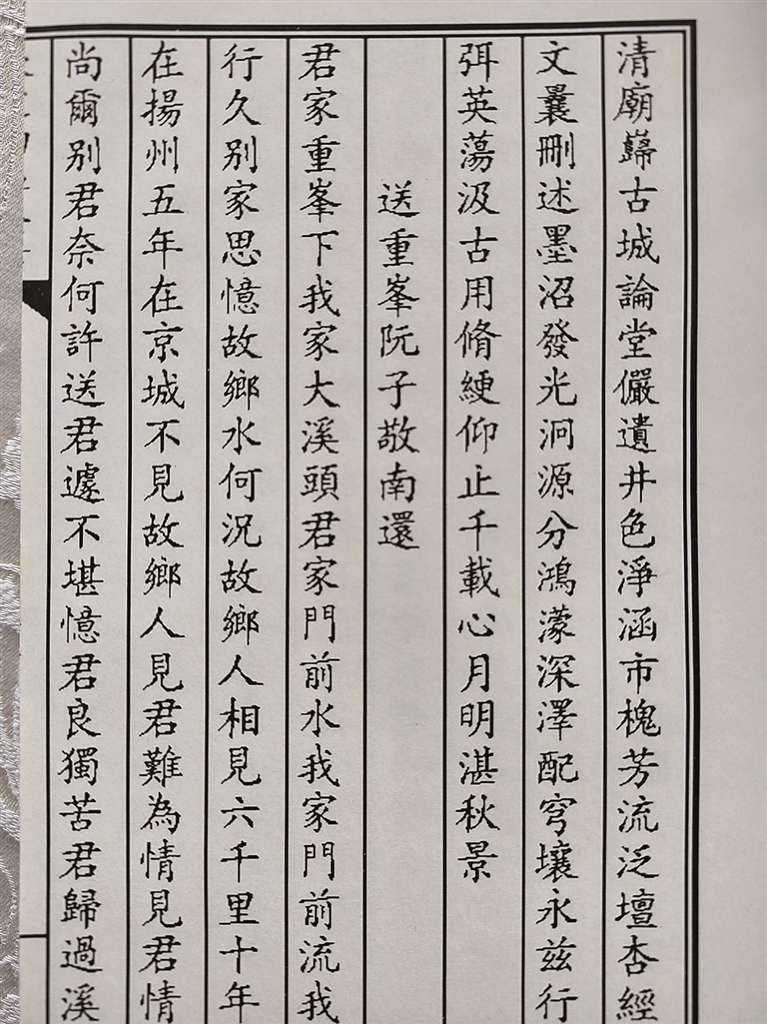 清廟巋古城論堂儼遺井色淨涵市槐芳流泛壇杏經
文曩刪述墨沼發光泂源分鴻濛深澤配穹壤永茲行
弭英蕩汲古用脩綆仰止千載心月明湛秋景
送重峯阮子敬南還
君家重峯下我家大溪頭君家門前水我家門前流我
行久別家思憶故鄉水何況故鄉人相見六千里十年
在揚州五年在京城不見故鄉人見君難為情見君情
尚爾別君奈何許送君遽不堪憶君良獨苦君歸過溪